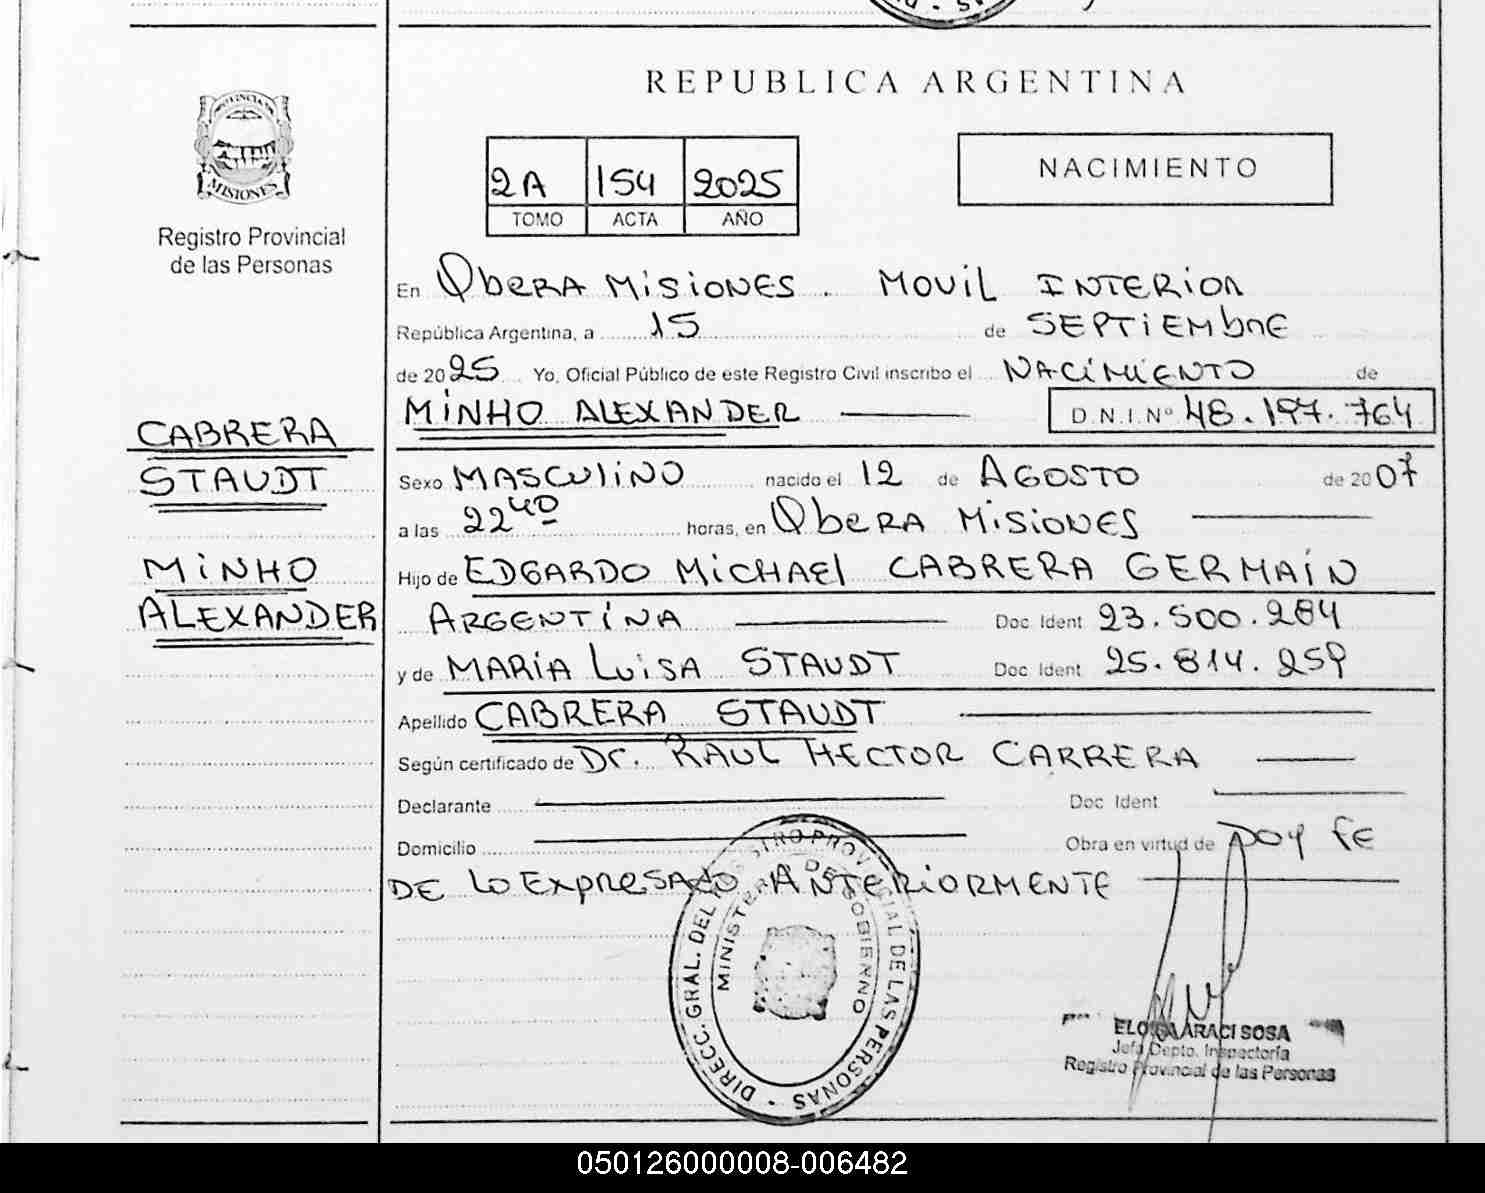 REPUBLICA ARGENTINA
PROVINCIA DE
MISIONES
Registro Provincial
de las Personas
2A 154 2025
TOMO ACTA AÑO
NACIMIENTO
En Obera Misiones. Movil Interior
República Argentina, a 15 de SEPTIEMbre
de 2025 Yo, Oficial Público de este Registro Civil inscribo el NACIMIENTO de
MINHO ALEXANDER D.N.I. Nº 48.197.764
CABRERA
STAUDT
MINHO
ALEXANDER
Sexo MASCULINO nacido el 12 de AGOSTO de 2007
a las 22 40 horas, en Obera Misiones
Hijo de EDGARDO MICHAEL CABRERA GERMAIN
ARGENTINA Doc. Ident 23.500.284
y de MARIA LUISA STAUDT Doc Ident 25.814.259
Apellido CABRERA STAUDT
Según certificado de Dr. RAUL HECTOR CARRERA
Declarante Doc Ident
Domicilio Obra en virtud de Doy Fe
DE LO EXPRESADO ANTERIORMENTE
DIRECC. GRAL. DEL REGISTRO PROVINCIAL DE LAS PERSONAS
MINISTERIO DE GOBIERNO
ARACI SOSA
Jefa Depto. Inspectoría
Registro Provincial de las Personas
050126000008-006482